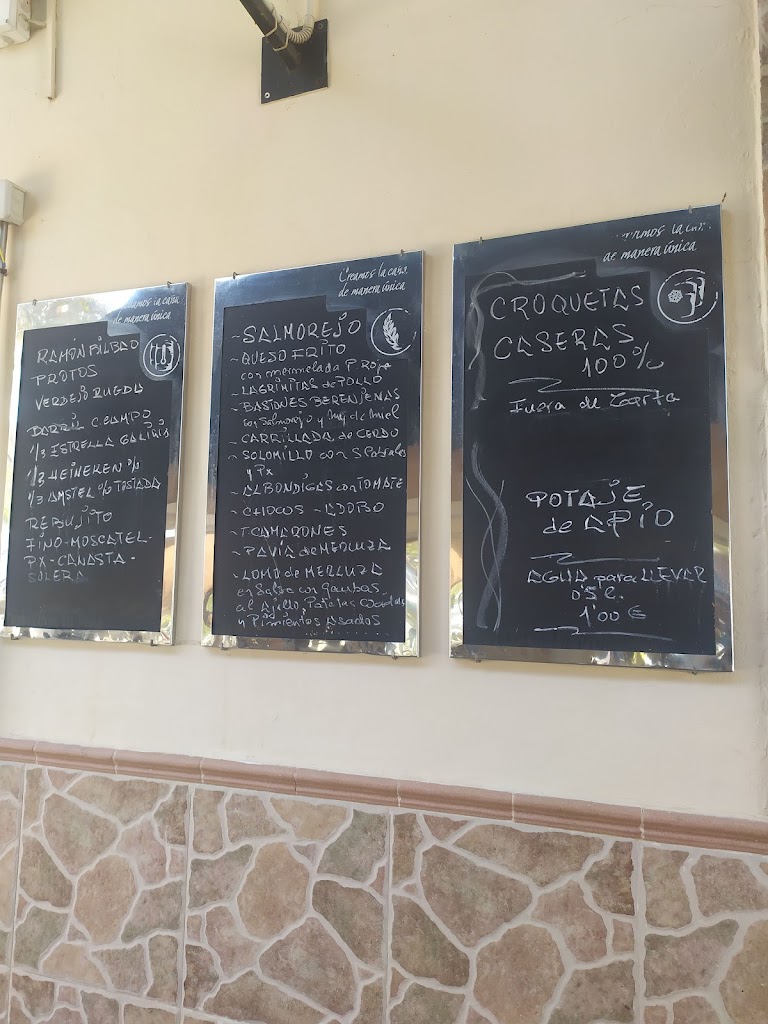 de manera única
RAMÓN BILBAO
PROTOS
VERDEJO RUEDA
BARRIL C.CAMPO
1/3 ESTRELLA GALICIA
1/3 HEINEKEN %
1/3 AMSTEL % TOSTADA
REBUJITO
FINO-MOSCATEL-
PX-CANASTA-
SOLERA
Creamos la casa
de manera única
-SALMOREJO
-QUESO FRITO
con mermelada P. Rojo
-LAGRIMITAS de POLLO
-BASTONES BERENJENAS
con Salmorejo y Miel
-CARRILLADA de CERDO
-SOLOMILLO con S.
y Px
-ALBONDIGAS con TOMATE
-CHOCOS -ADOBO
-T.CAMARONES
-PAVIA de MERLUZA
-LOMO de MERLUZA
en Salsa con gambas
al Ajillo, Patatas
y Pimientos Asados
la
de manera única
CROQUETAS
CASERAS
100%
Fuera de Carta
POTAJE
de APIO
AGUA para LLEVAR
0'5 l.
1'00 €